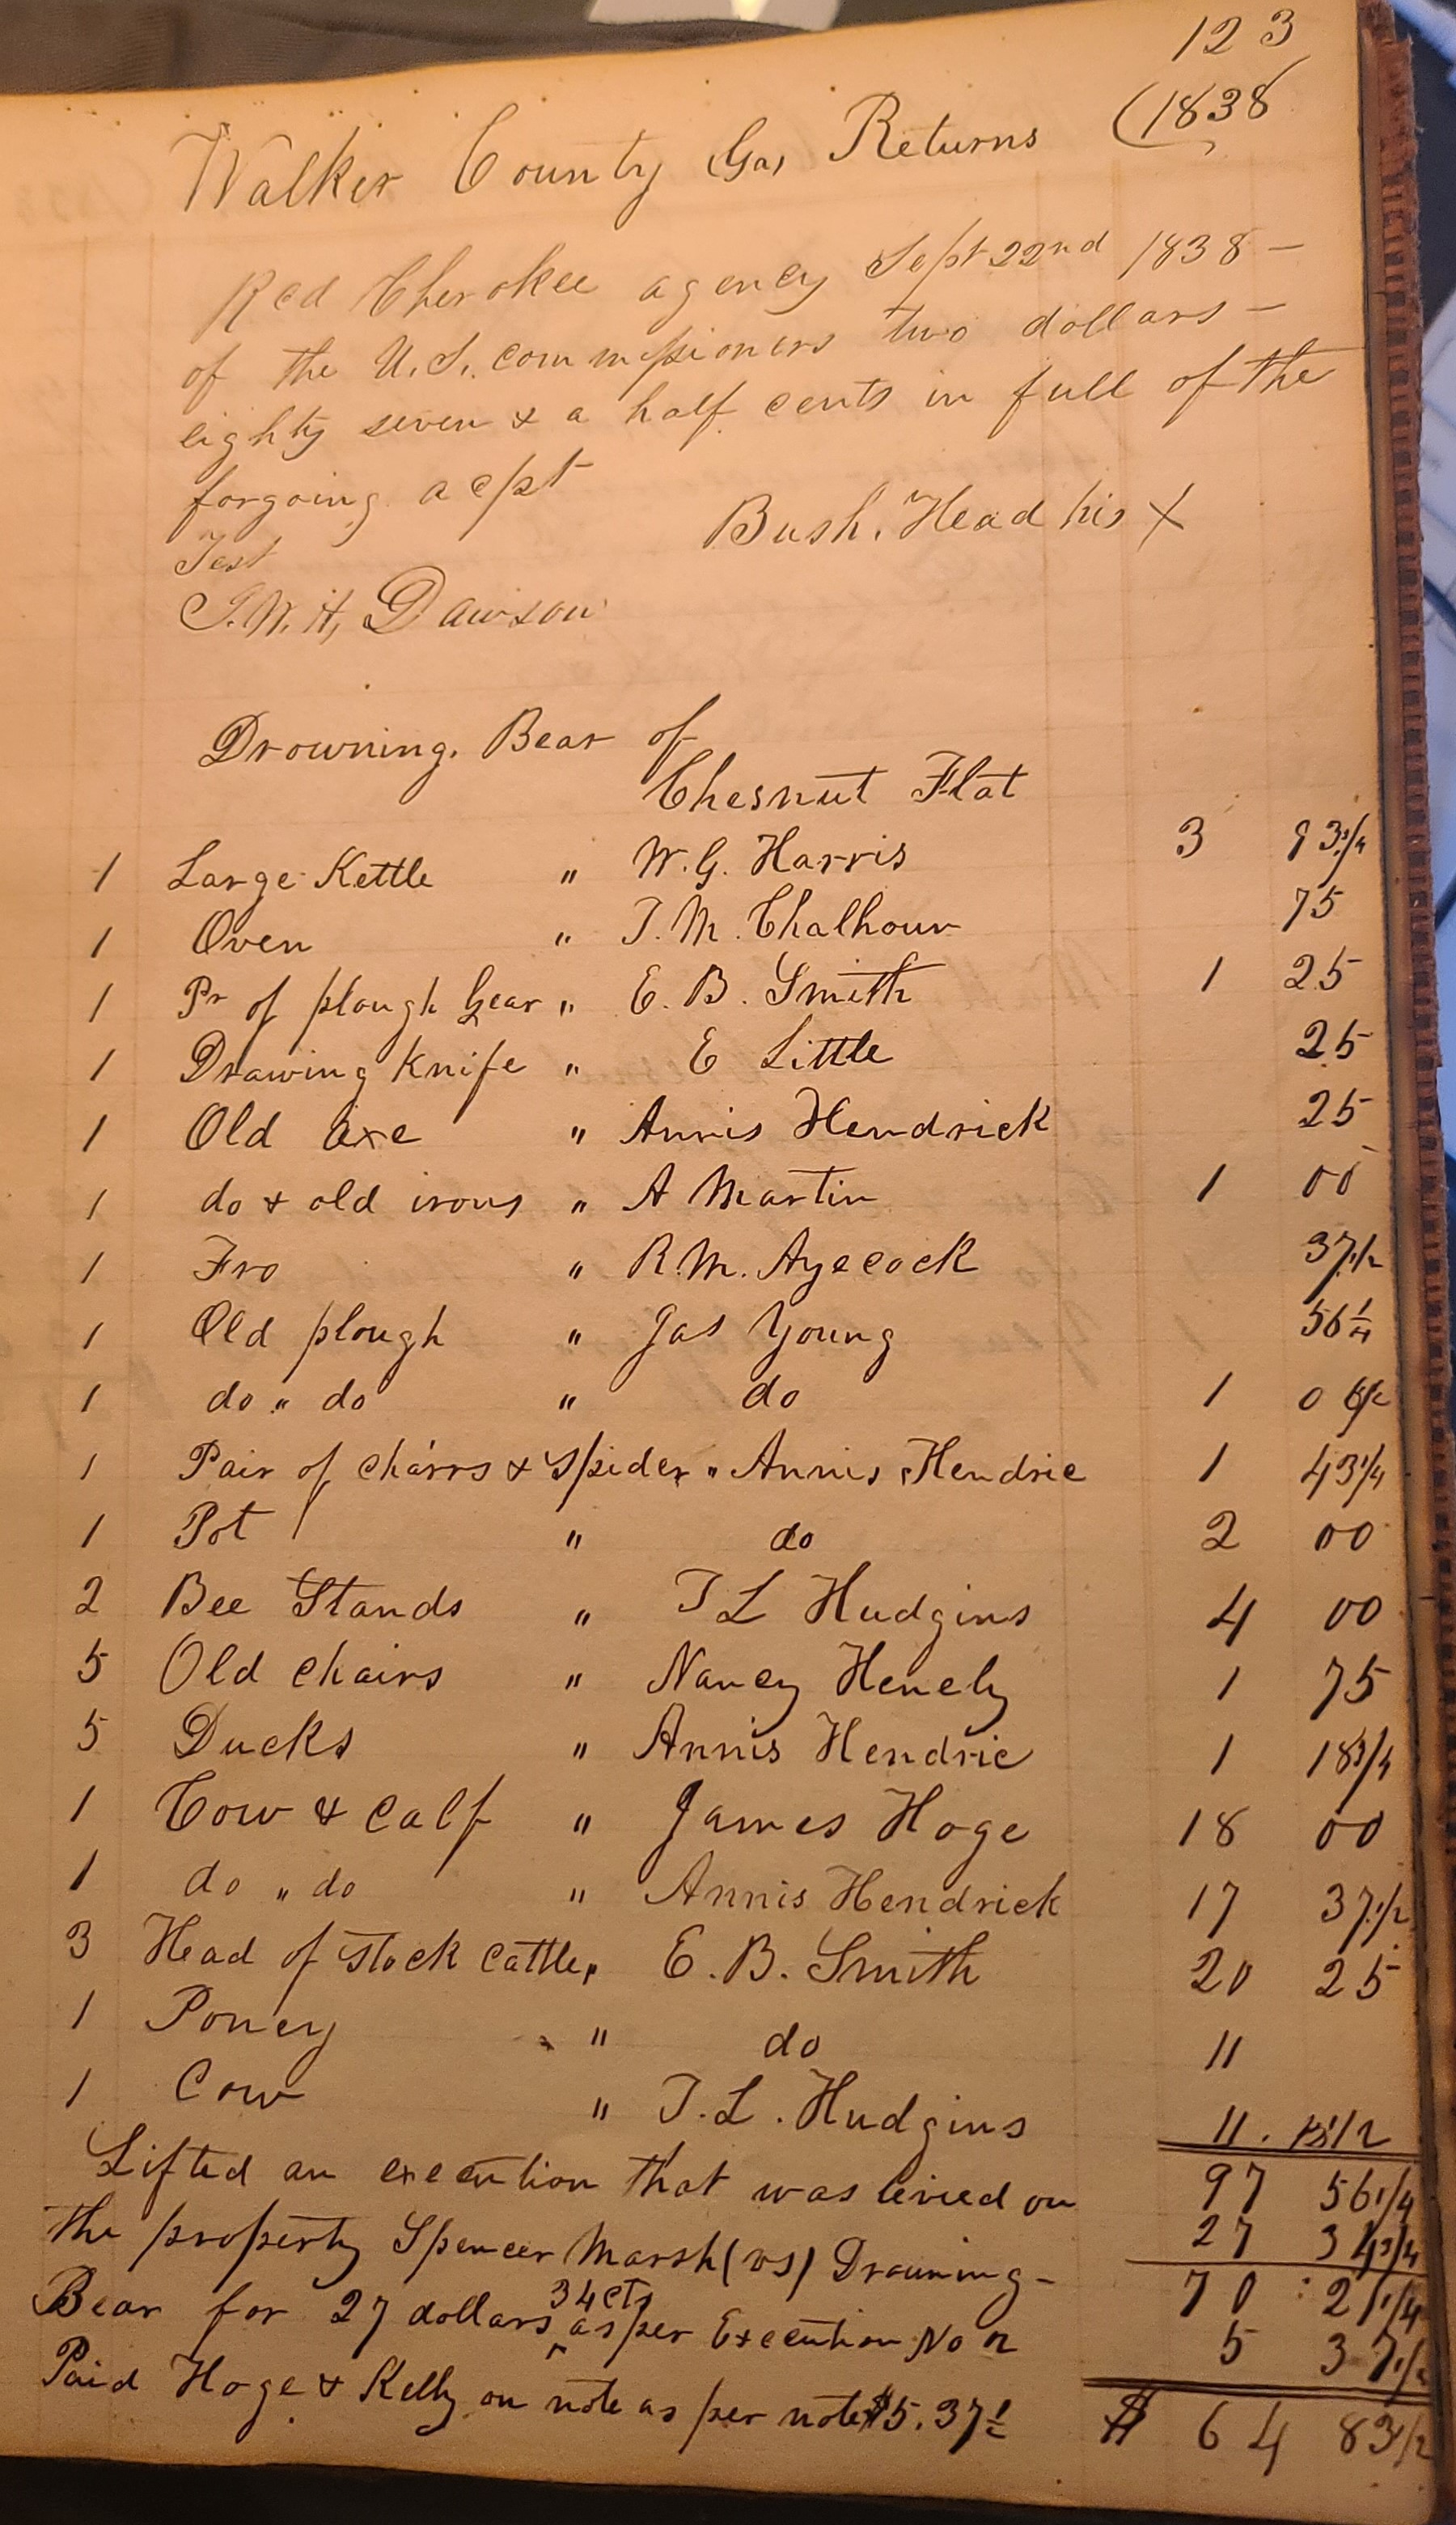 123
Walker County (Ga) Returns (1838
Recd Cherokee agency Sept 22nd 1838 —
of the U.S. commissioners two dollars —
eighty seven & a half cents in full of the
forgoing acpt
Bush. Head his X
Test
T.W.H. Dawson
Drowning. Bear of
Chesnut Flat
1 Large Kettle " W.G. Harris 3 93 3/4
1 Oven " T.M. Chalhour 75
1 Pr of plough Gear " E.B. Smith 1 25
1 Drawing Knife " E Little 25
1 Old axe " Annis Hendrick 25
1 do & old irons " A Martin 1 00
1 Fro " R.M. Ayecock 37 1/2
1 Old plough " Jas Young 56 1/4
1 do " do " do 1 06 1/2
1 Pair of chairs & Spider " Annis Hendric 1 43 1/4
1 Pot " do 2 00
2 Bee Stands " T L Hudgins 4 00
5 Old chairs " Nancy Henely 1 75
5 Ducks " Annis Hendric 1 18 3/4
1 Cow & Calf " James Hoge 18 00
1 do " do " Annis Hendrick 17 37 1/2
3 Head of stock cattle " E.B. Smith 20 25
1 Poney " do 11
1 Cow " T.L. Hudgins 11.
Lifted an execution that was levied on 97 56 1/4
the property Spencer Marsh (vs) Drowning- 27 34 3/4
Bear for 27 dollars 34 cts as per Execution No 2 70 : 21 1/4
Paid Hoge & Kelly on note as per note $5.37 1/2 5 37 1/2
$ 64 83 1/2